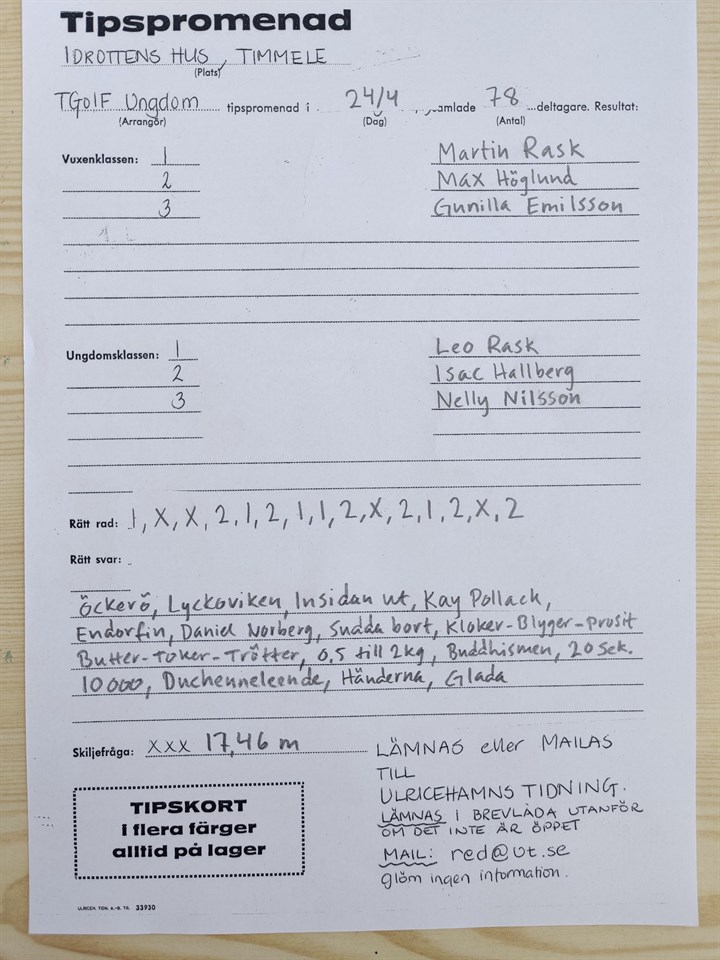 Tipspromenad
IDROTTENS HUS, TIMMELE
(Plats)
TGOIF Ungdom tipspromenad i 24/4 , samlade 78 deltagare. Resultat:
(Arrangör) (Dag) (Antal)
Vuxenklassen: 1 Martin Rask
2 Max Höglund
3 Gunilla Emilsson
Ungdomsklassen: 1 Leo Rask
2 Isac Hallberg
3 Nelly Nilsson
Rätt rad: 1, X, X, 2, 1, 2, 1, 1, 2, X, 2, 1, 2, X, 2
Rätt svar:
Öckerö, Lyckoviken, Insidan ut, Kay Pollack,
Endorfin, Daniel Norberg, Sudda bort, Kloker-Blyger-Prosit
Butter-Toker-Trötter, 0,5 till 2kg, Buddhismen, 20 sek.
10000, Duchenneleende, Händerna, Glada
Skiljefråga: xxx 17,46 m
LÄMNAS eller MAILAS
TILL
ULRICEHAMNS TIDNING.
LÄMNAS I BREVLÅDA UTANFÖR
OM DET INTE ÄR ÖPPET
MAIL: red@ut.se
glöm ingen information.
TIPSKORT
i flera färger
alltid på lager
ULRICEH. TIDN. A.-B. TIL 33930